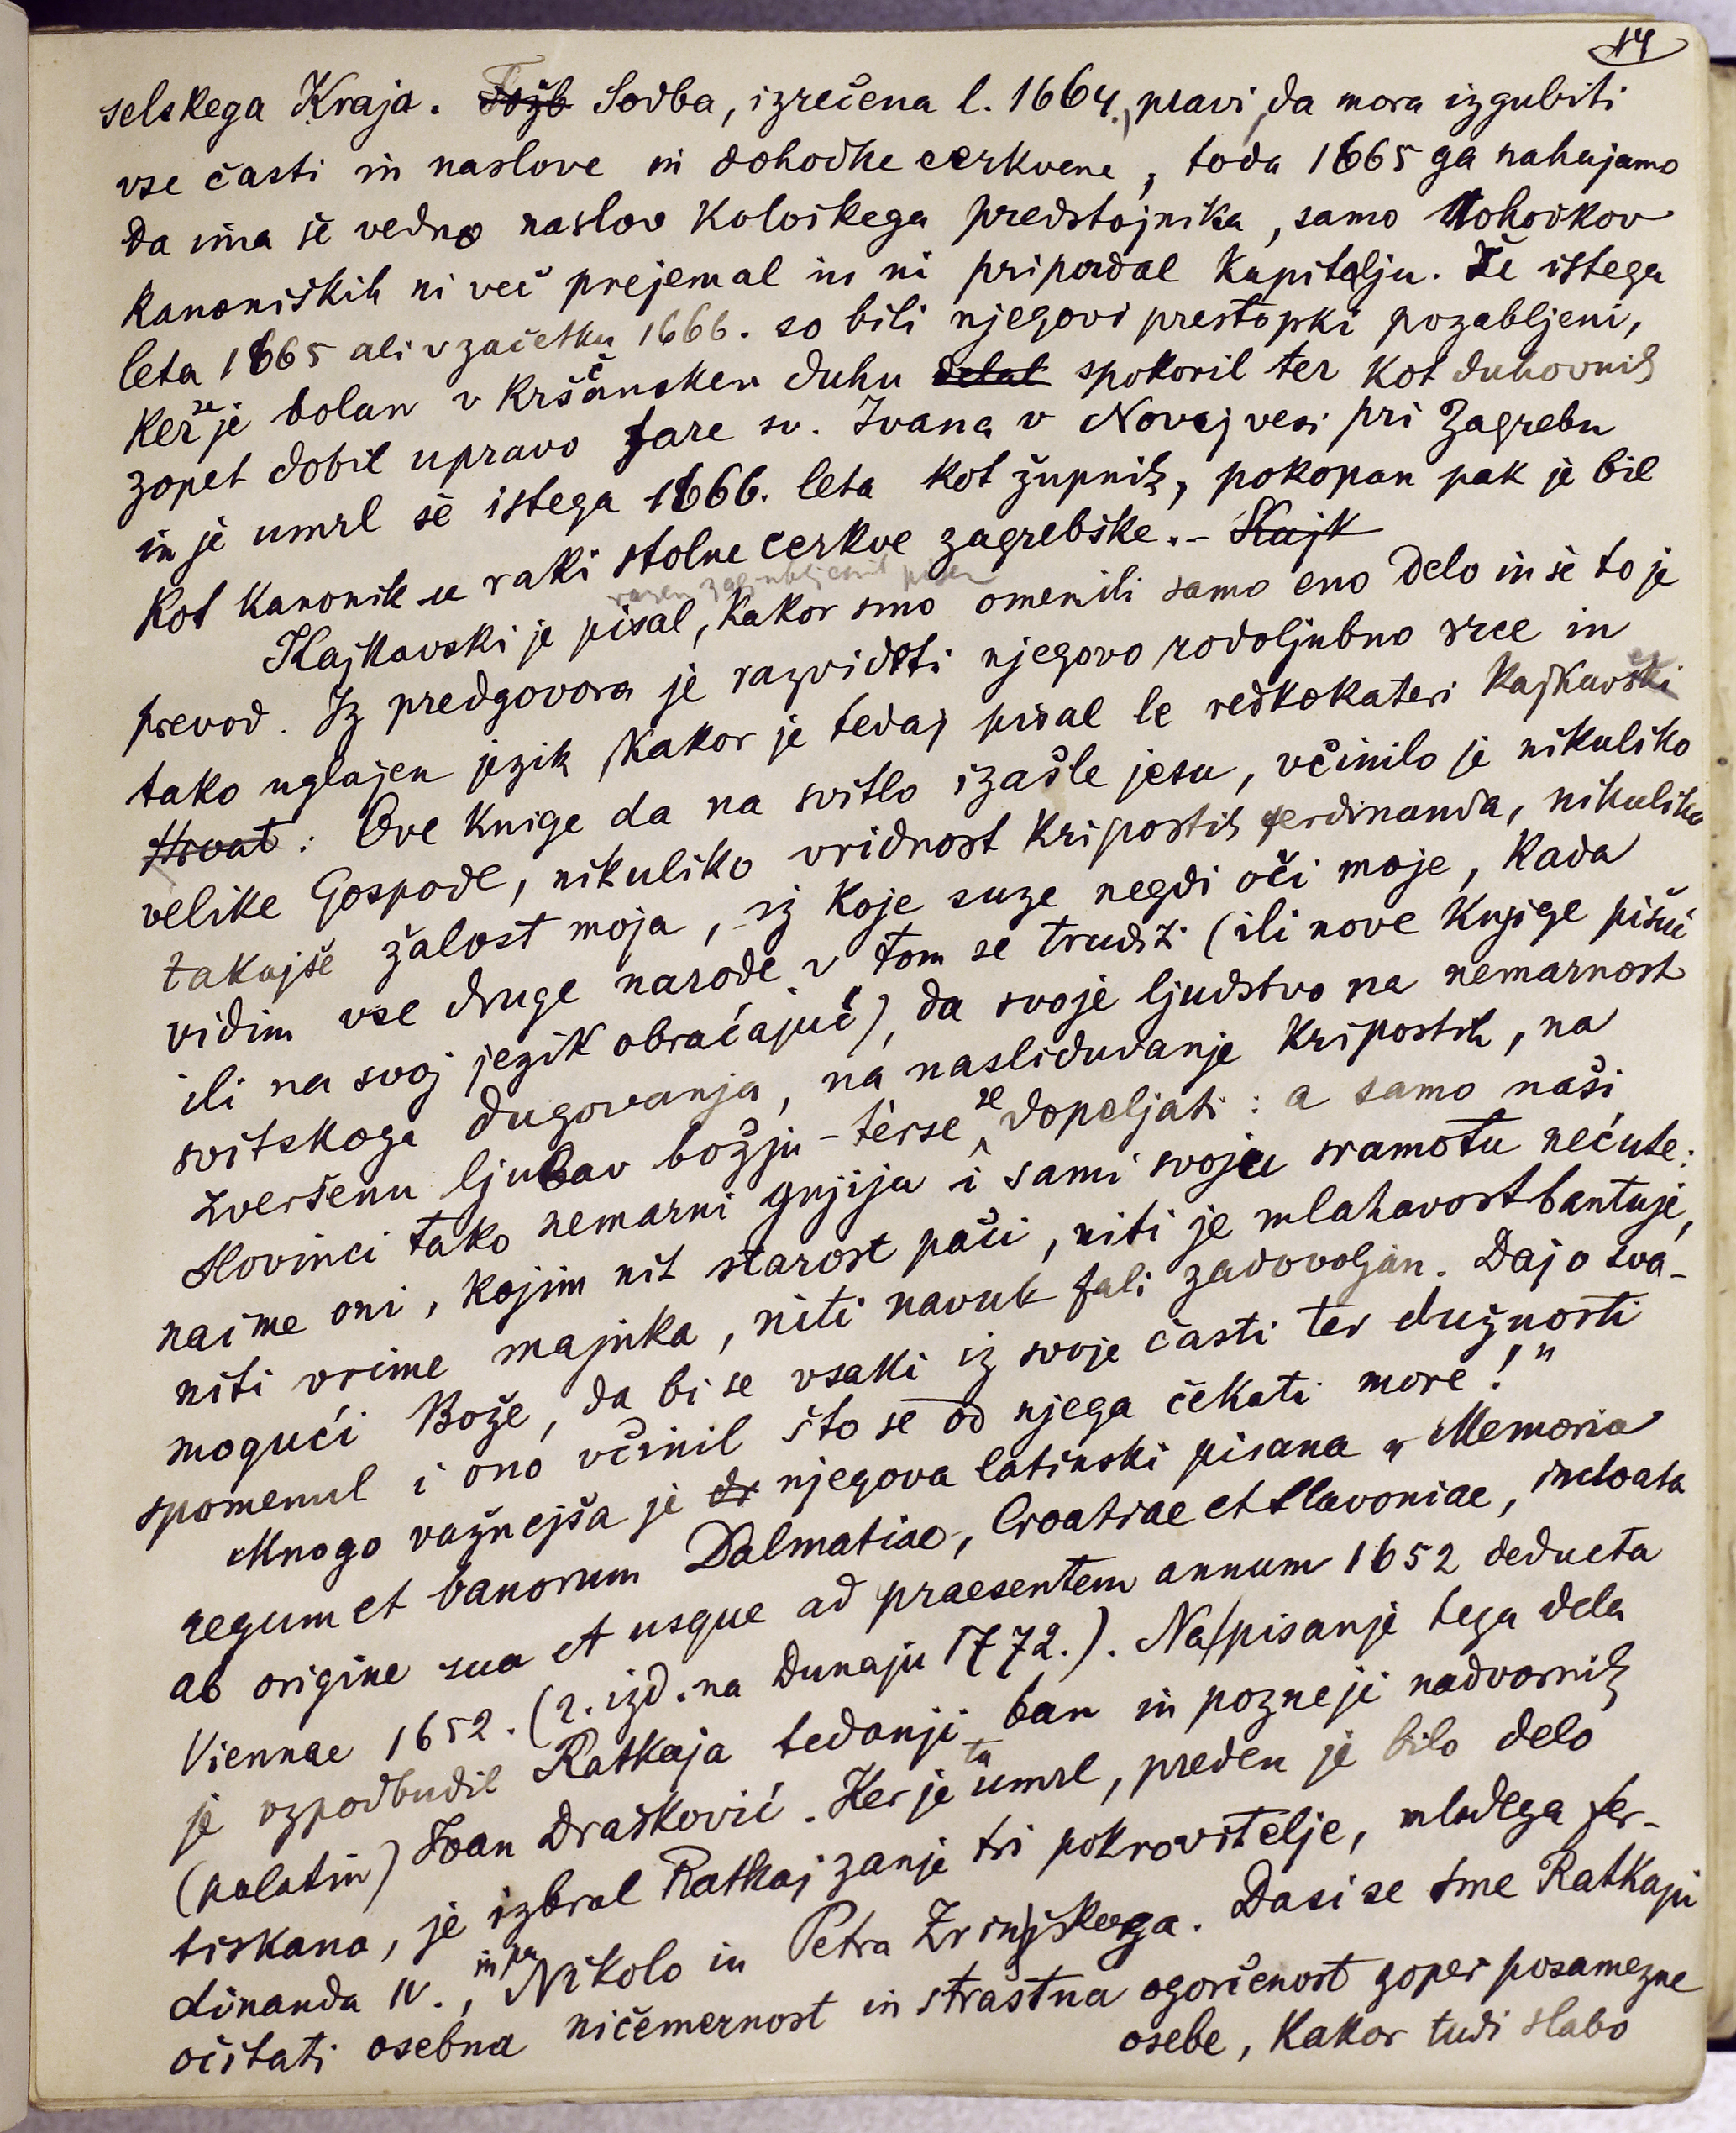 14
selskega Kraja. Tožb Sodba, izrečena l. 1664., pravi, da mora izgubiti
vse časti in naslove in dohodke cerkvene, toda 1665 ga nahajamo
da ima še vedno naslov kološkega predstojnika, samo dohodkov
kanoniških ni več prejemal in ni pripadal kapitelju. Že istega
leta 1665 ali v začetku 1666. so bili njegovi prestopki pozabljeni,
ker se je bolan v krščanskem duhu delal spokoril ter kot duhovnik
zopet dobil upravo fare sv. Ivana v Novej vesi pri Zagrebu
in je umrl še istega 1666. leta kot župnik, pokopan pak je bil
kot kanonik u raki stolne cerkve zagrebške. - Kajk
razen zagubljenih pisem
Kajkavski je pisal, kakor smo omenili samo eno delo in še to je
prevod. Iz predgovora je razvideti njegovo rodoljubno srce in
tako uglajen jezik, kakor je tedaj pisal le redkokateri kajkavski ec
Hrvat: Ove knige da na svitlo izašle jesu, včinilo je nikuliko
velike Gospode, nikuliko vridnost kripostih ferdinanda, nikuliko
takajše žalost moja, iz koje suze negdi oči moje, kada
vidim vse druge narode v tom se truditi (ili nove knjige pišuć
ili na svoj jezik obraćajuć), da svoje ljudstvo na nemarnost
svitskoga dugovanja, na nasliduvanje kripostih, na
zveršenu ljubav božju - terse se dopeljati: a samo naši
Slovinci tako nemarni gnjiju i sami svoju sramotu nećute:
naime oni, kojim nit starost pači, niti je mlahavost bantuje,
niti vrime majnka, niti navuk fali zadovoljan. Daj o sva-
mogući Bože, da bi se vsaki iz svoje časti ter dužnosti
spomenul i ono včinil što se od njega čekati more!"
Mnogo važnejša je dr njegova latinski pisana „Memoria
regum et banorum Dalmatiae, Croatiae et Slavoniae, inchoata
ab origine sua et usque ad praesentem annum 1652 deducta
Viennae 1652. (2. izd. na Dunaju 1772.). Na pisanje tega dela
je vzpodbudil Ratkaja tedanji ban in pozneji nadvornik
(palatin) Ivan Drašković. Ker je ta umrl, preden je bilo delo
tiskano, je izbral Ratkaj zanje tri pokrovitelje, mladega fer-
dinanda IV., in pa Nikolo in Petra Zrinjskega. Dasi se sme Ratkaju
očitati osebna ničemernost in strastna ogorčenost zoper posamezne
osebe, kakor tudi slabo